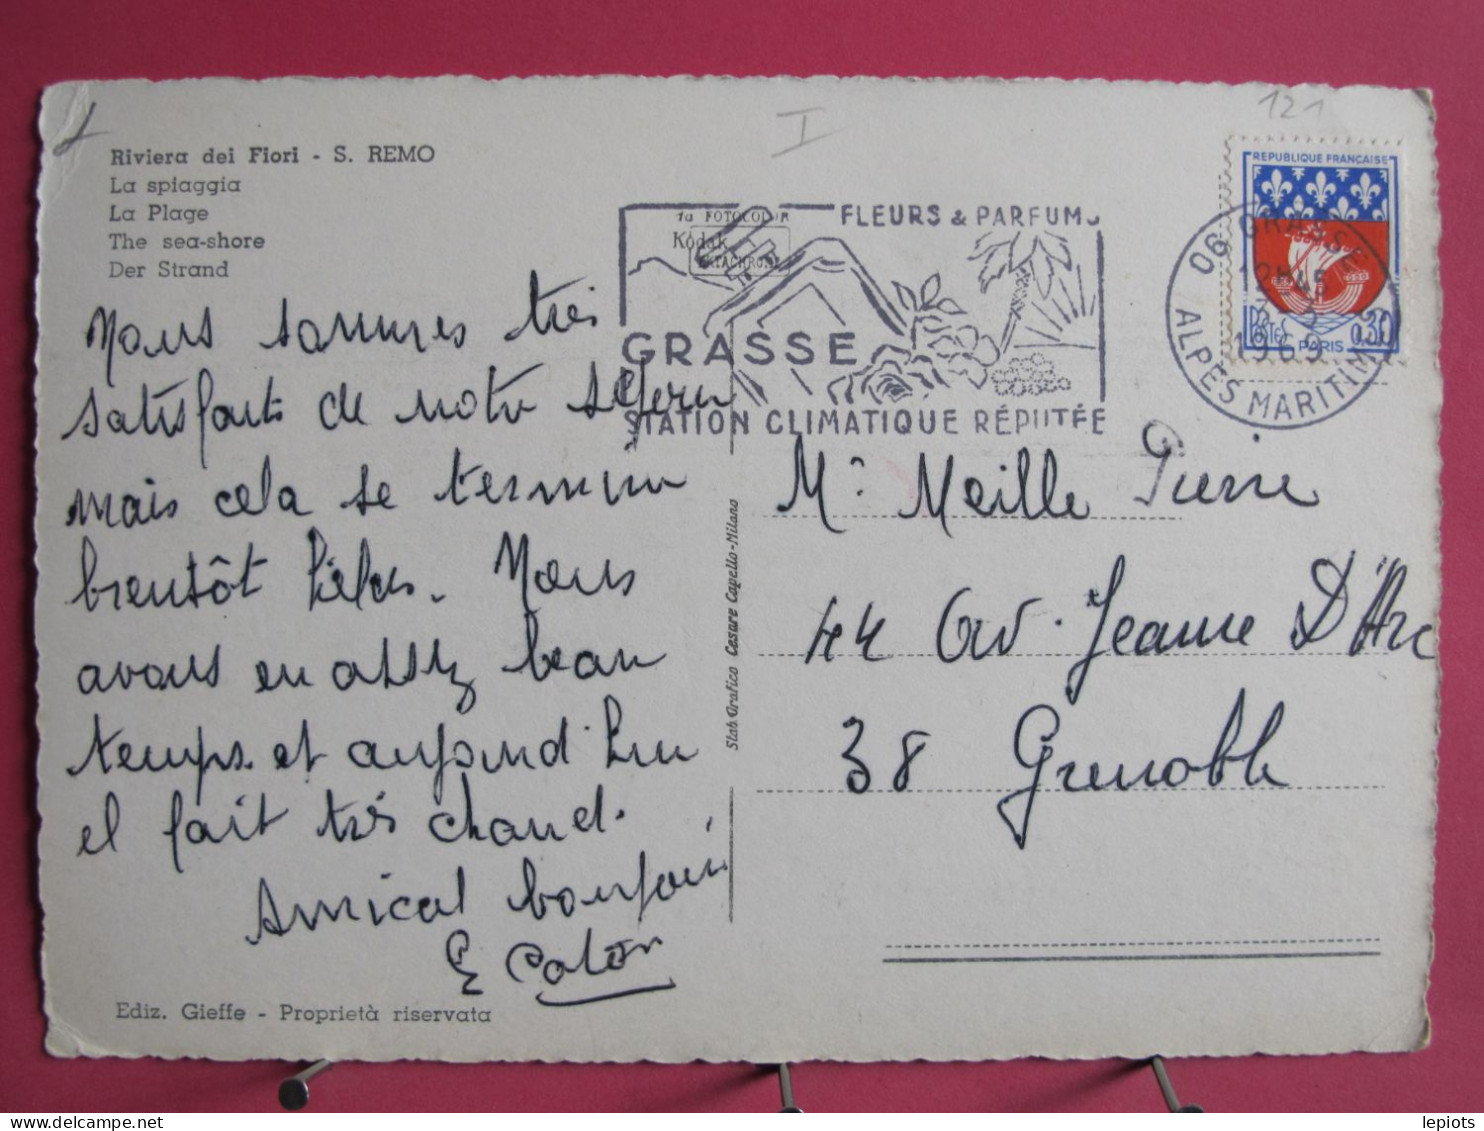 121
I
Riviera dei Fiori - S. REMO
La spiaggia
La Plage
The sea-shore
Der Strand
Nous sommes très
satisfaits de notre séjour
mais cela se termine
bientôt hélas. Nous
avons eu assez beau
temps et aujourd'hui
il fait très chaud.
Amical bonjour
Ediz. Gieffe - Proprietà riservata
FOTOCOLOR
Kodak
EKTACHROME
FLEURS & PARFUMS
GRASSE
STATION CLIMATIQUE RÉPUTÉE
REPUBLIQUE FRANÇAISE
POSTES 0,30
PARIS
06 GRASSE
12H45
1969
ALPES MARITIMES
Mr Meille Pierre
44 Av. Jeanne D'Arc
38 Grenoble
Stab. Grafico Cesare Capello - Milano
lepiots